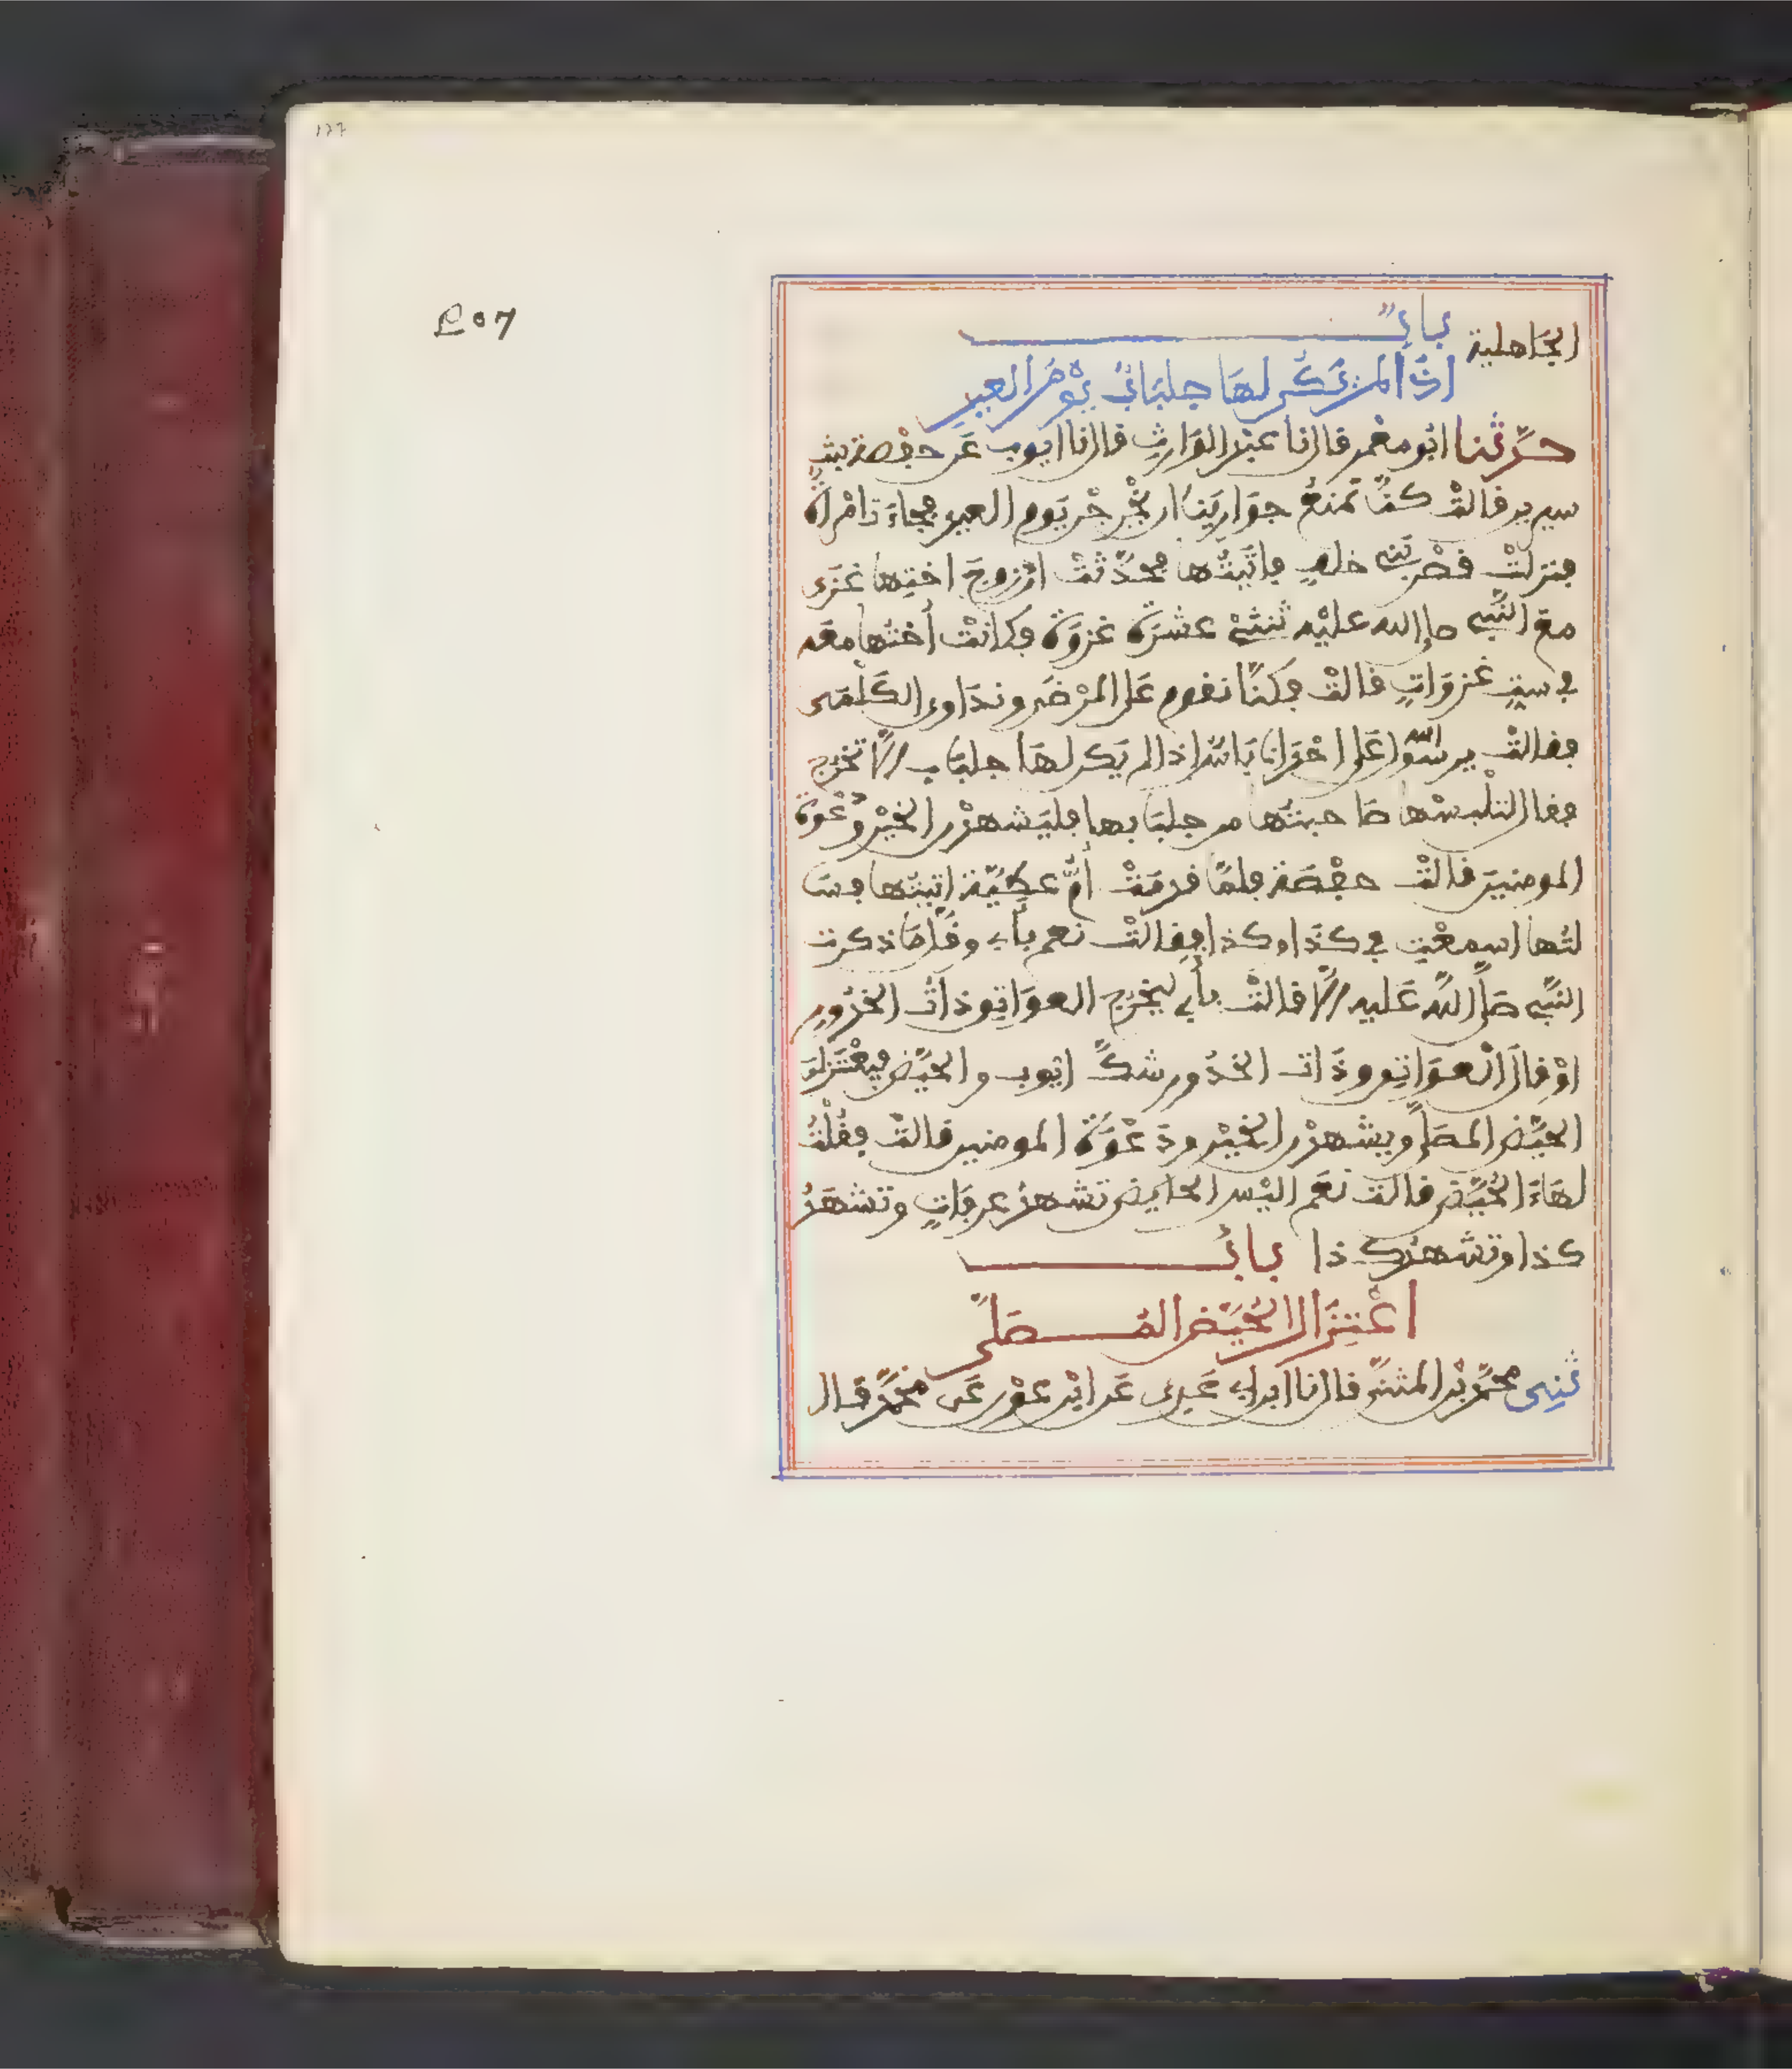 الجَاهلية بابٌ
اذَا لمْ تَكُن لهَا جلبَابٌ يوْمَ العيدِ
حدَّثنا ابُو مَعْمَر قال نا عبْد الوَارِثِ قال نا ايوب عَن حفْصة بنتِ
سيرين قالتْ كنَّا نمنَعُ جوَارِيَنَا ان يخْرجْن يَوم العيدِ فجاءَت امْراةٌ
فنزلتْ قصْرَ بَنِي خلفٍ فاتَيتُها فحدَّثتْ انّ زوجَ اختِها غزَى
معَ النَّبِي صلى الله عليْه ثنتَيْ عشرَةَ غزوَة فكانتْ أختُها معَه
في ستِّ غزوَاتٍ قالتْ فكنَّا نقوم عَلى المرْضَى ونُدَاوي الكَلْمَى
فقالتْ يرسُول الله اعَلى احْدَانا بَاسٌ اذا لم يَكن لهَا جلبَاب الَّا تخرج
فقال لتلْبسْها صَاحبتُها من جلبَابها فليَشهدْن الخيْرَ ودَعْوةَ
المومنينَ قالتْ حفْصَة فلمَّا قدِمَتْ أمُّ عطيَّة اتيتُها فسَا
لتُها اسمعْتِ في كذَا وكذا فقالتْ نعم بأبي وقلَّمَا ذكرت
النَّبِي صَلى اللهُ عَليه الَّا قالتْ بأبي ليخْرج العوَاتق ذاتُ الخدُورِ
اوْ قالَ العوَاتِق وذَات الخدُور شكَّ ايوب والحيَّض فيعْتزلنَ
الحيَّض المصَلى ويشهدْن الخيْر ودَعْوَةَ المومنين قالتْ فقُلْتُ
لهَا ءَالحُيَّض قالت نعَم اليْس الحايض تشهدُ عرفَاتٍ وتشهَدُ
كذا وتشهدُ كذا بابُ
اعْتِزَال الحُيَّض المُصَلَّى
ثنِي محمَّد بْن المثنَّى قال نا ابن ابي عَدِي عَن ابْن عوْن عَن محَمَّد قال